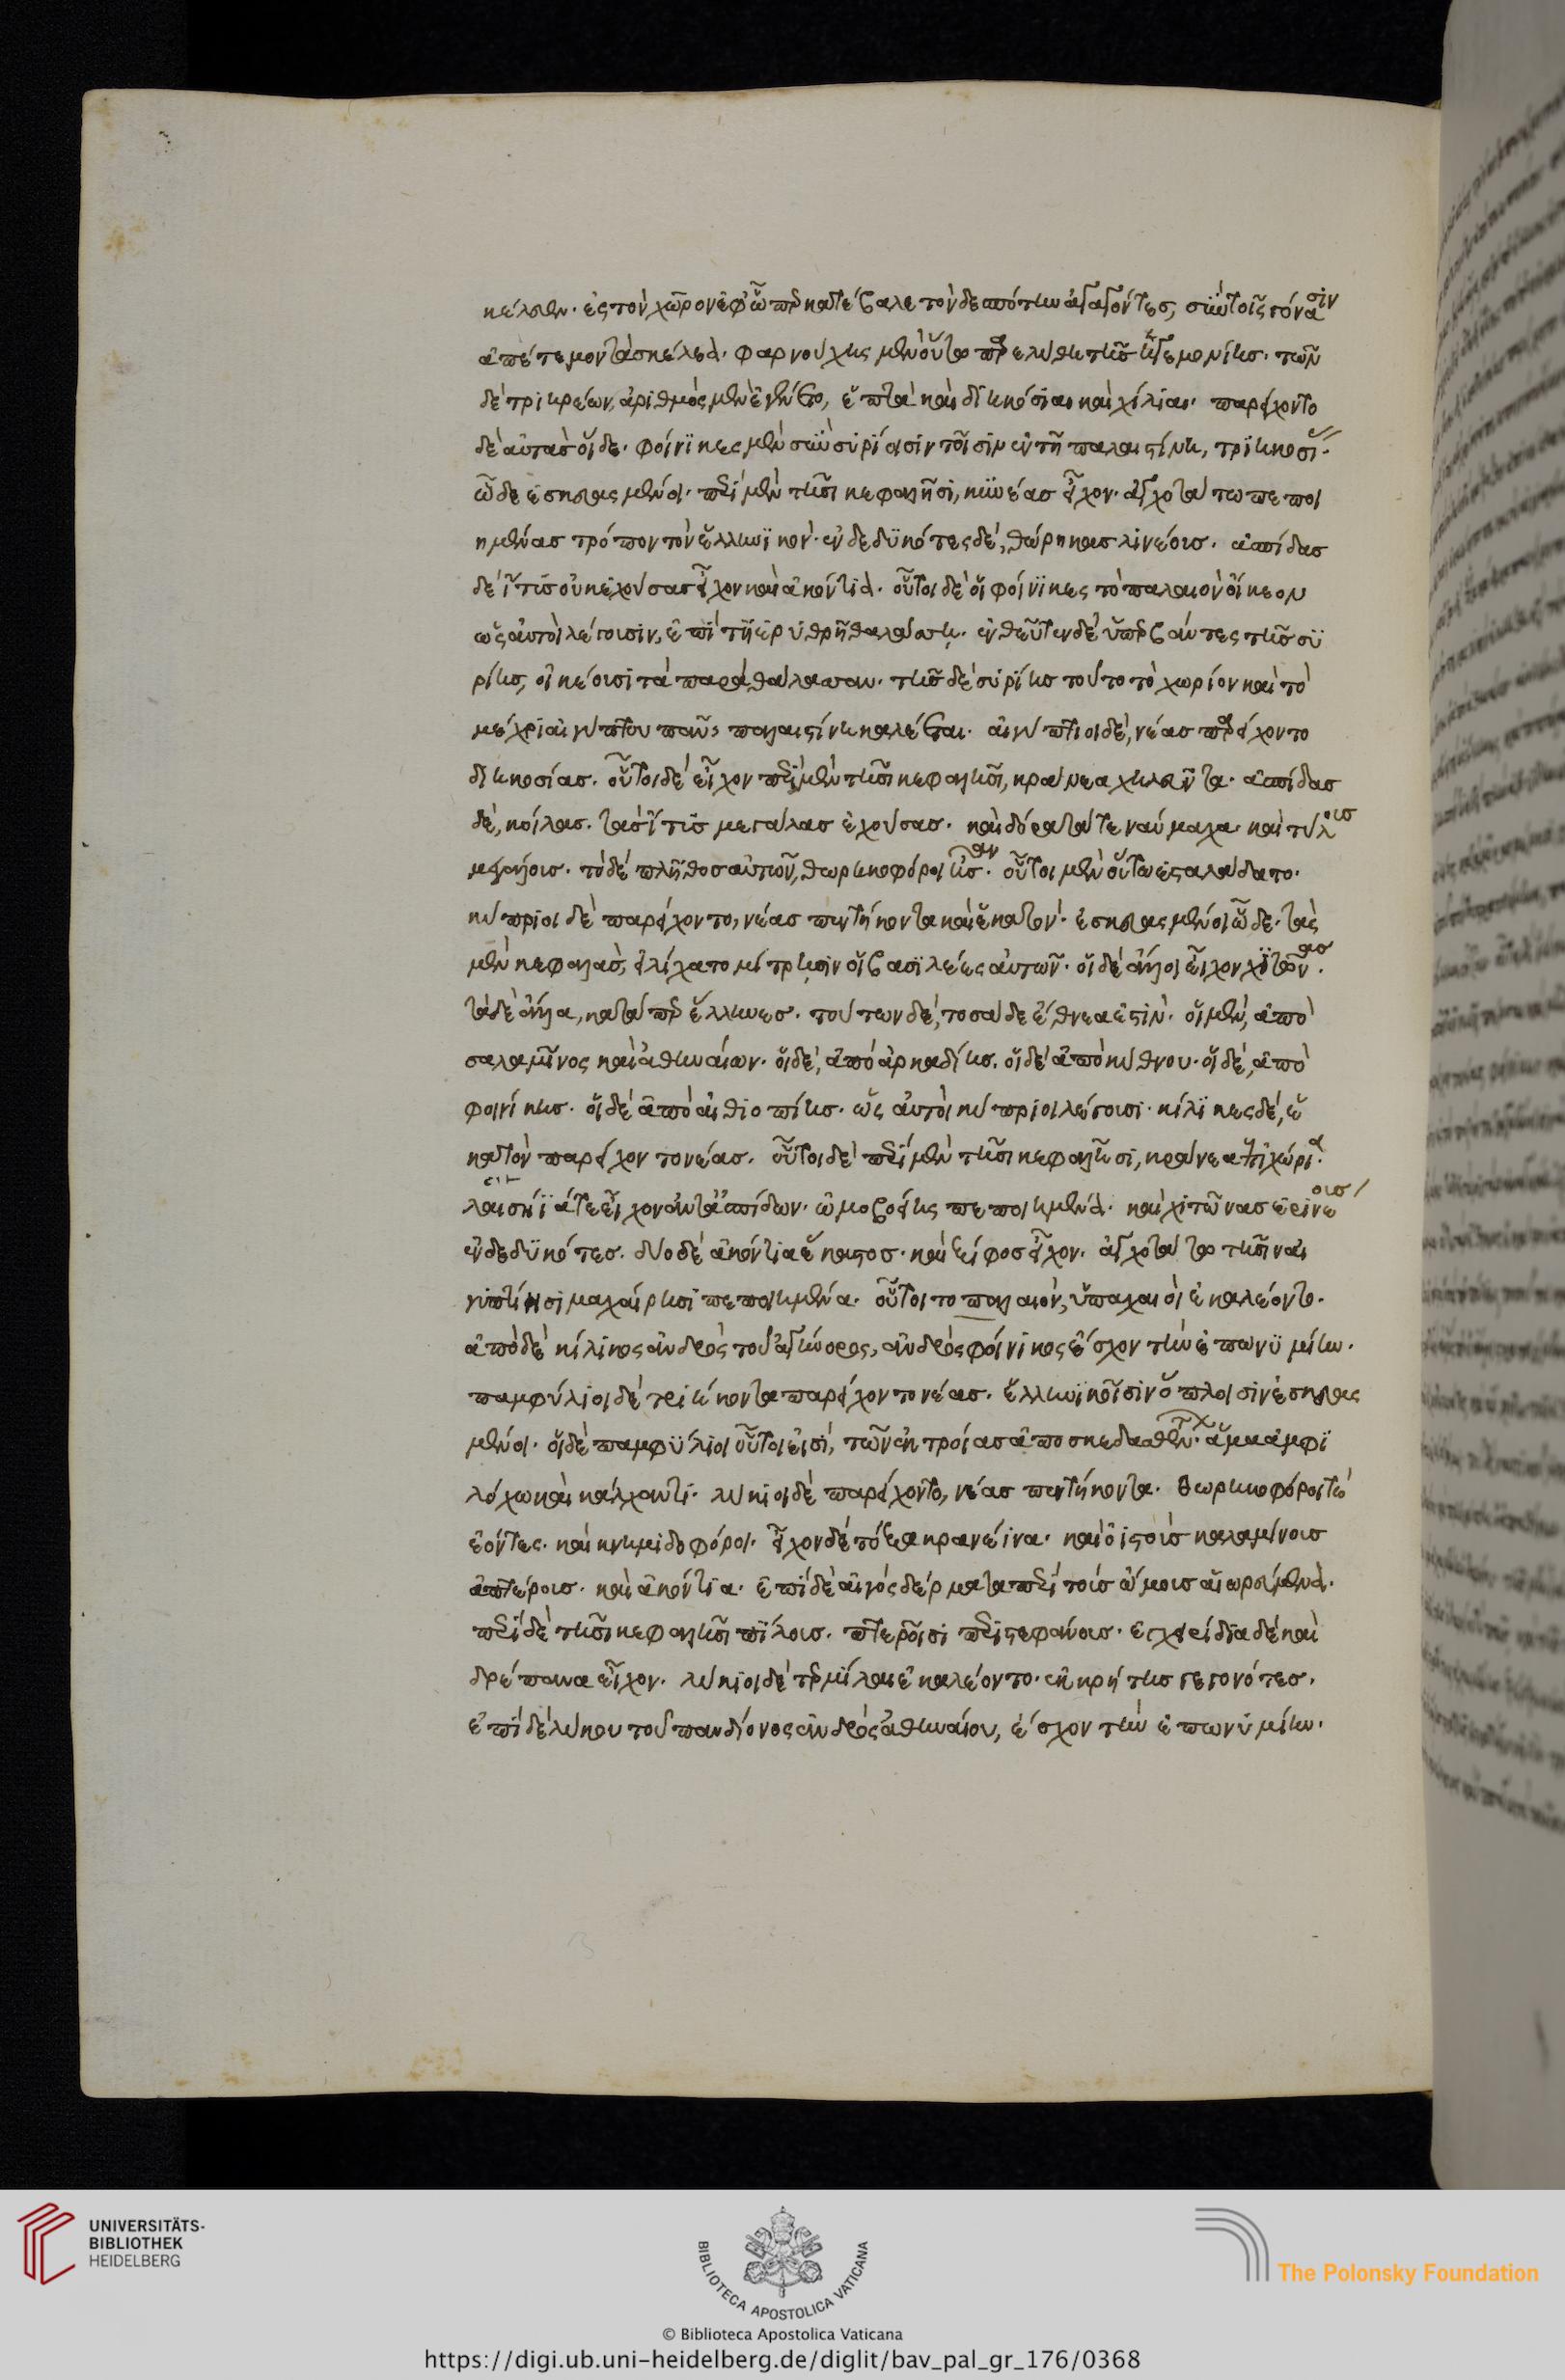 κέλευεν· ἐς τὸν χῶρον ἐφ' ᾧ περ κατέβαλε τὸν δεσπότην ἀγαγόντες, σὺν τοῖς γόνασιν
ἀπέτεμον τὰ σκέλεα. φαρνούχης μὲν οὕτω παρελύθη τῆς ἡγεμονίης. τῶν
δὲ τριηρέων, ἀριθμὸς μὲν ἐγένετο, ἑπτὰ καὶ διηκόσιαι καὶ χίλιαι. παρείχοντο
δὲ αὐτὰς οἵδε. φοίνικες μὲν σὺν συρίοισιν τοῖσιν ἐν τῇ παλαιστίνῃ, τριηκοσί
ὧδε ἐσκευασμένοι. περὶ μὲν τῆσι κεφαλῆσι, κυνέας εἶχον. ἀγχοτάτω πεποι
ημένας τρόπον τὸν ἑλληνικόν. ἐνδεδυκότες δὲ, θώρηκας λινέοις. ἀσπίδας
δὲ ἴτυς οὐκ ἐχούσας εἶχον καὶ ἀκόντια. οὗτοι δὲ οἱ φοίνικες τὸ παλαιὸν οἴκεον
ὡς αὐτοὶ λέγοισιν, ἐπὶ τῇ ἐρυθρῇ θαλάσσῃ. ἐνθεῦτεν δὲ ὑπερβάντες τῆς συ
ρίης, οἰκέοισι τὰ παρὰ θάλασσαν. τῆς δὲ συρίης τοῦτο τὸ χωρίον καὶ τὸ
μέχρι αἰγύπτου πᾶν, παλαιστίνη καλέεται. αἰγύπτιοι δὲ, νέας παρείχοντο
διηκοσίας. οὗτοι δὲ εἶχον περὶ μὲν τῆσι κεφαλῆσι, κράνεα χηλευτά. ἀσπίδας
δὲ, κοίλας. τὰς ἴτυς μεγάλας ἐχούσας. καὶ δόρατά τε ναύμαχα. καὶ τύκοις
μεγάλοις. τὸ δὲ πλῆθος αὐτῶν, θωρηκοφόροι ἦσαν. οὗτοι μὲν οὕτω ἐσταλάδατο.
κύπριοι δὲ παρείχοντο, νέας πεντήκοντα καὶ ἑκατόν. ἐσκευασμένοι ὧδε. τὰς
μὲν κεφαλὰς, εἱλίχατο μίτρῃσιν οἱ βασιλέες αὐτῶν. οἱ δὲ ἄλλοι εἶχον χιτῶνας.
τὰ δὲ ἄλλα, κατάπερ ἕλληνες. τούτων δὲ, τοσάδε ἔθνεά ἐστιν. οἱ μὲν, ἀπὸ
σαλαμῖνος καὶ ἀθηναίων. οἱ δὲ, ἀπὸ ἀρκαδίης. οἱ δὲ ἀπὸ κύθνου. οἱ δὲ, ἀπὸ
φοινίκης. οἱ δὲ ἀπὸ αἰθιοπίης. ὡς αὐτοὶ κύπριοι λέγοισι. κίλικες δὲ, ἑ
κατὸν παρείχοντο νέας. οὗτοι δὲ περὶ μὲν τῆσι κεφαλῆσι, κράνεα ἐπιχώρια.
λαισήϊά τε εἶχον ἀντὰσπίδων. ὠμοβοείης πεποιημένα. καὶ χιτῶνας εἰρινέοις
ἐνδεδυκότες. δύο δὲ ἀκόντια ἕκαστος. καὶ ξίφος εἶχον. ἀγχοτάτω τῆσιν αἰ
γυπτίῃσι μαχαίρῃσι πεποιημένα. οὗτοι τὸ παλαιὸν, ὑπαχαιοὶ ἐκαλέοντο.
ἀπὸ δὲ κίλικος ἀνδρὸς τοῦ ἀγήνορος, ἀνδρὸς φοίνικος ἔσχον τὴν ἐπωνυμίην.
παμφύλιοι δὲ τριήκοντα παρείχοντο νέας. ἑλληνικοῖσιν ὅπλοισιν ἐσκευασ
μένοι. οἱ δὲ παμφύλιοι οὗτοι εἰσὶ, τῶν ἐκ τροίας ἀποσκεδασθέντων ἅμα ἀμφι
λόχω καὶ κάλχαντι. λύκιοι δὲ παρείχοντο, νέας πεντήκοντα. θωρηκοφόροι τε
ἐόντες. καὶ κνημιδοφόροι. εἶχον δὲ τόξα κρανέϊνα. καὶ ὀϊστοὺς καλαμίνοις
ἀπτέροις. καὶ ἀκόντια. ἐπὶ δὲ αἰγὸς δέρματα περὶ τοὺς ὤμοις αἰωρούμενα.
περὶ δὲ τῆσι κεφαλῆσι πίλοις. πτεροῖσι περιστεφάνοις. ἐγχειρίδια δὲ καὶ
δρέπανα εἶχον. λύκιοι δὲ τερμίλαι ἐκαλέοντο. ἐκ κρήτης γεγονότες.
ἐπὶ δὲ λύκου τοῦ πανδίονος ἀνδρὸς ἀθηναίου, ἔσχον τὴν ἐπωνυμίην.
UNIVERSITÄTS-
BIBLIOTHEK
HEIDELBERG
BIBLIOTECA APOSTOLICA VATICANA
The Polonsky Foundation
© Biblioteca Apostolica Vaticana
https://digi.ub.uni-heidelberg.de/diglit/bav_pal_gr_176/0368